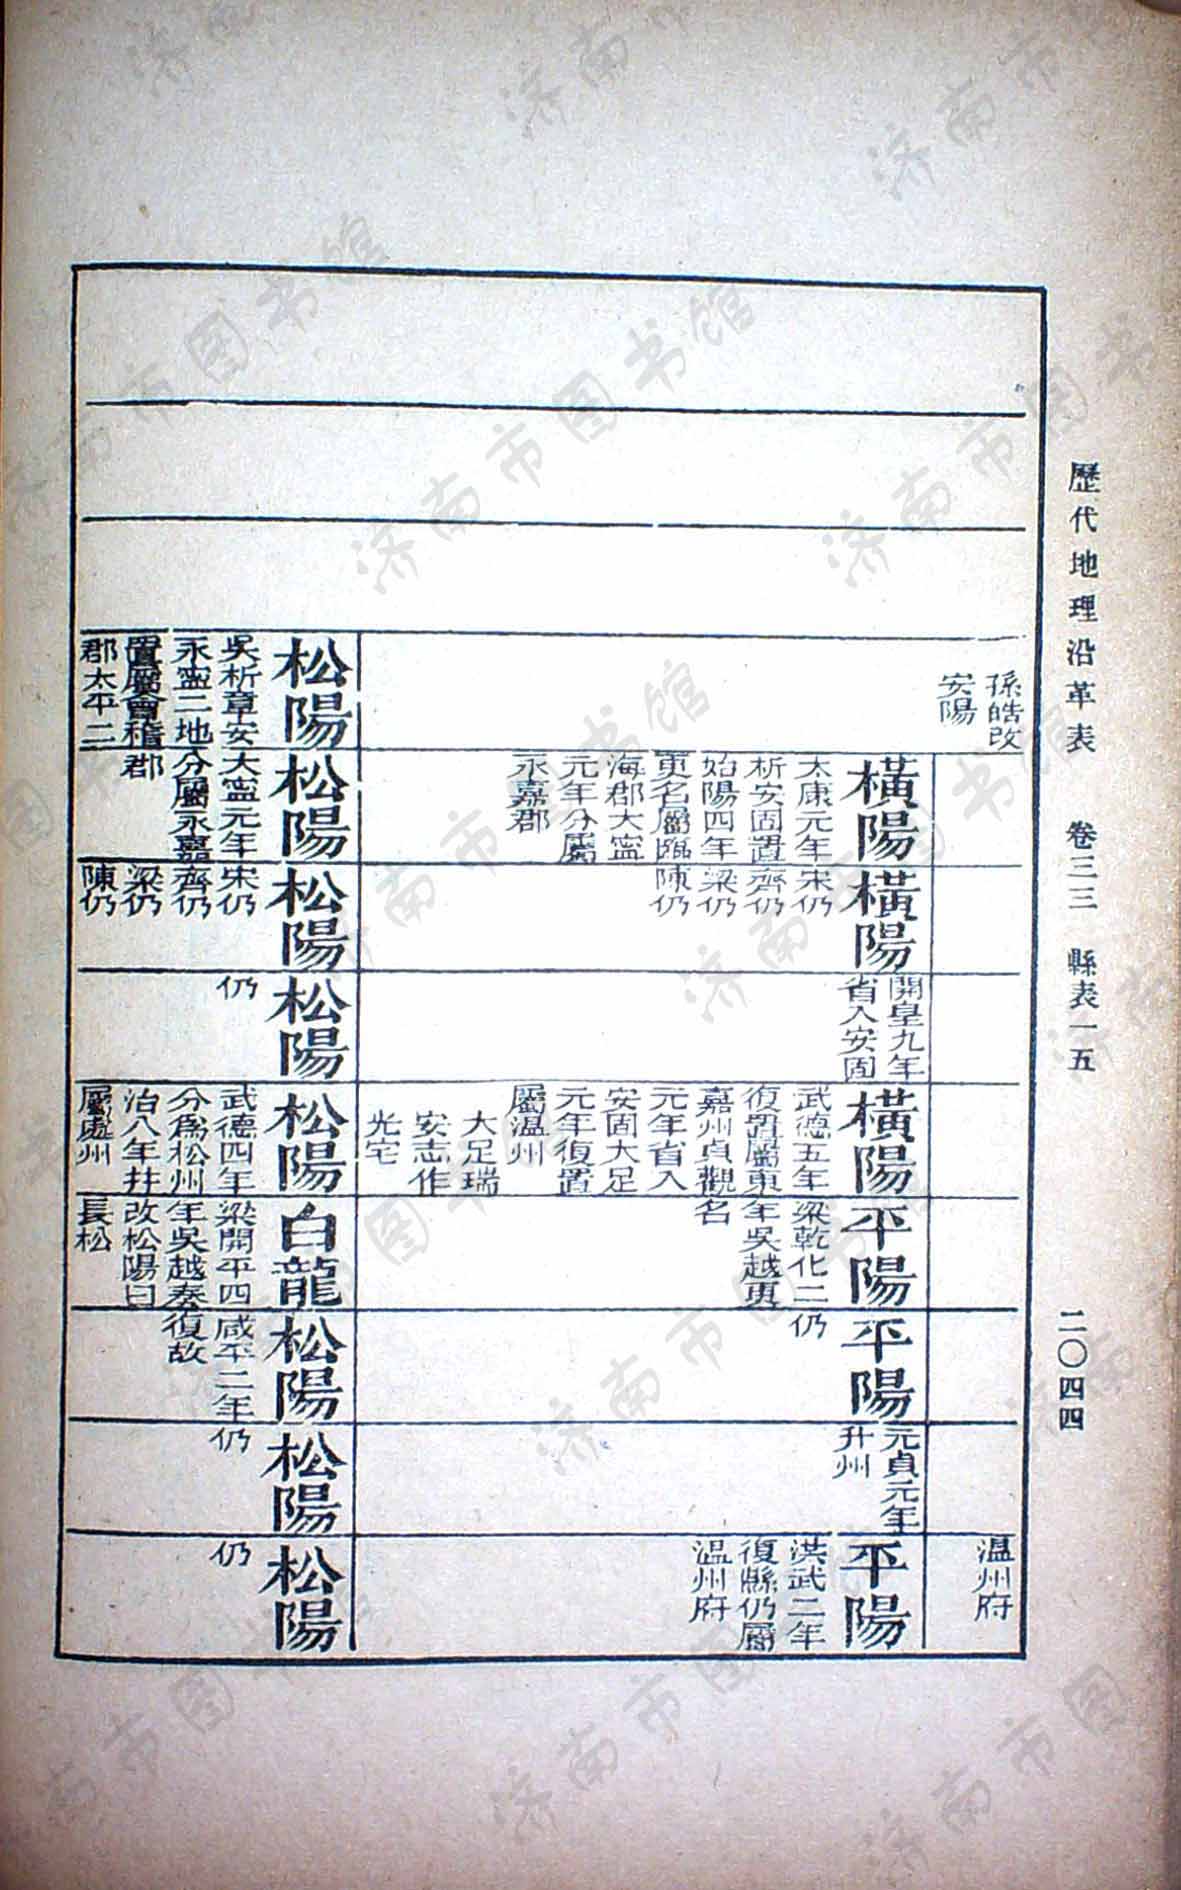 歷代地理沿革表 卷三三 縣表一五 二〇四四
孫皓改
安陽
溫州府
橫陽
太康元年
析安固置
始陽四年
更名屬臨
海郡大寧
元年分屬
永嘉郡
橫陽
宋仍
齊仍
梁仍
陳仍
開皇九年
省入安固
橫陽
武德五年
復置屬東
嘉州貞觀
元年省入
安固大足
元年復置
屬溫州
大足瑞
安志作
光宅
平陽
梁乾化二
年吳越更
名
平陽
仍
元貞元年
升州
平陽
洪武二年
復縣仍屬
溫州府
松陽
吳析章安
永寧二地
置屬會稽
郡太平二
松陽
大寧元年
分屬永嘉
郡
松陽
宋仍
齊仍
梁仍
陳仍
松陽
仍
松陽
武德四年
分為松州
治八年幷
屬處州
白龍
梁開平四
年吳越奏
改松陽曰
長松
松陽
咸平二年
復故
松陽
仍
松陽
仍
济南市图书馆